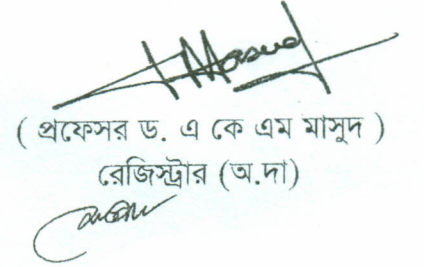 Masud
( প্রফেসর ড. এ কে এম মাসুদ )
রেজিস্ট্রার (অ.দা)